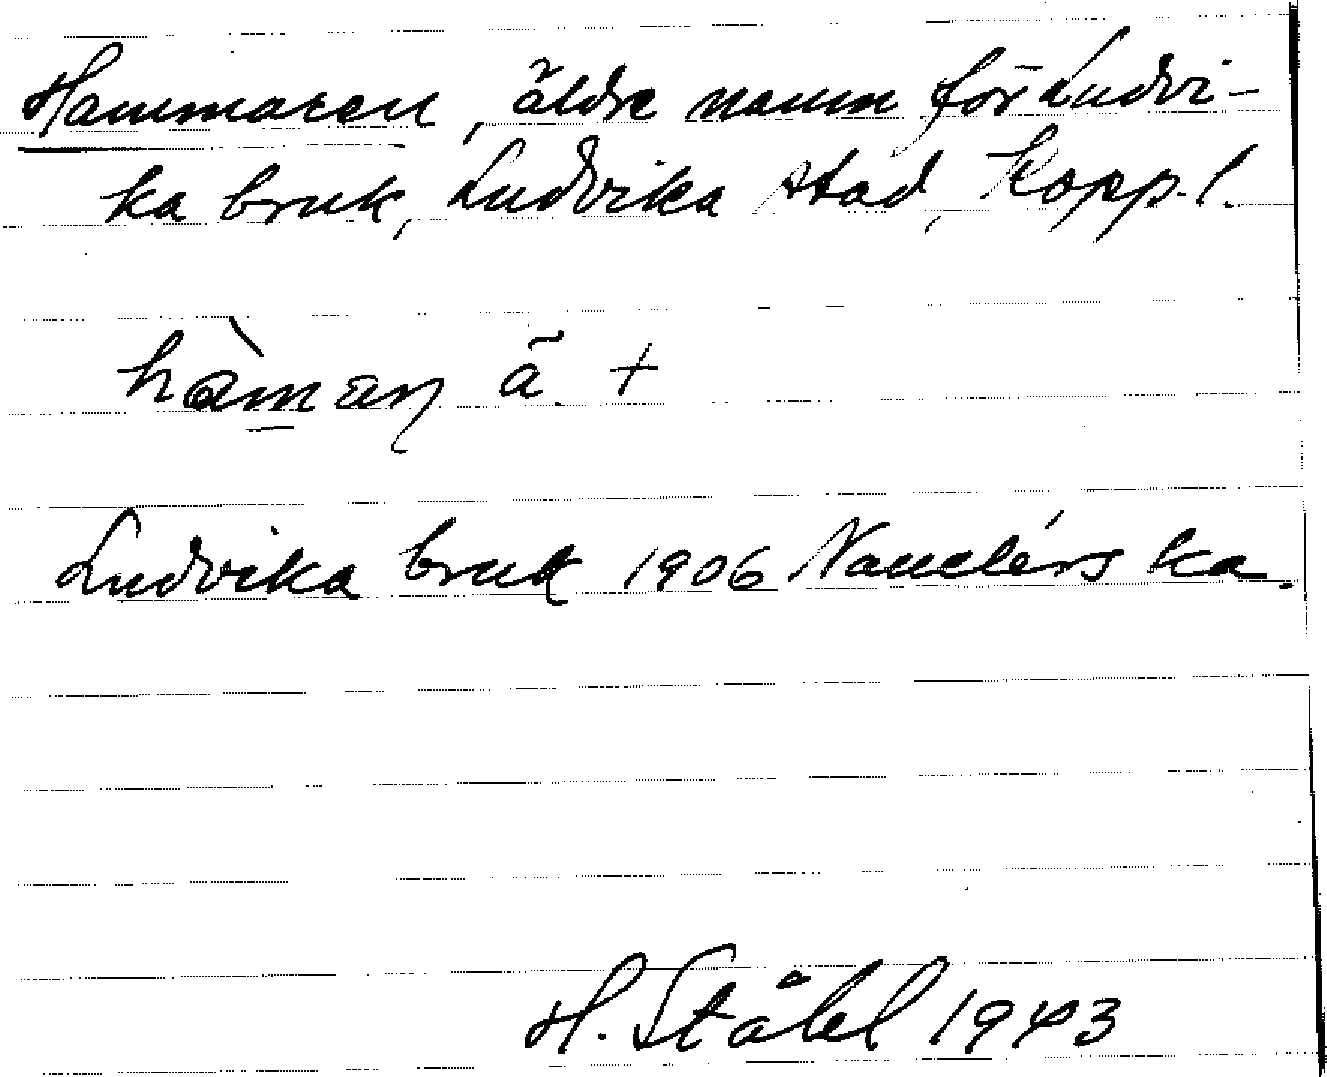 Hammaren, äldre namn för Ludvi-
ka bruk, Ludvika stad, Kopp. l.
hàm̲an ä. +
Ludvika bruk 1906 Nauclérs ka.
H. Ståhl 1943